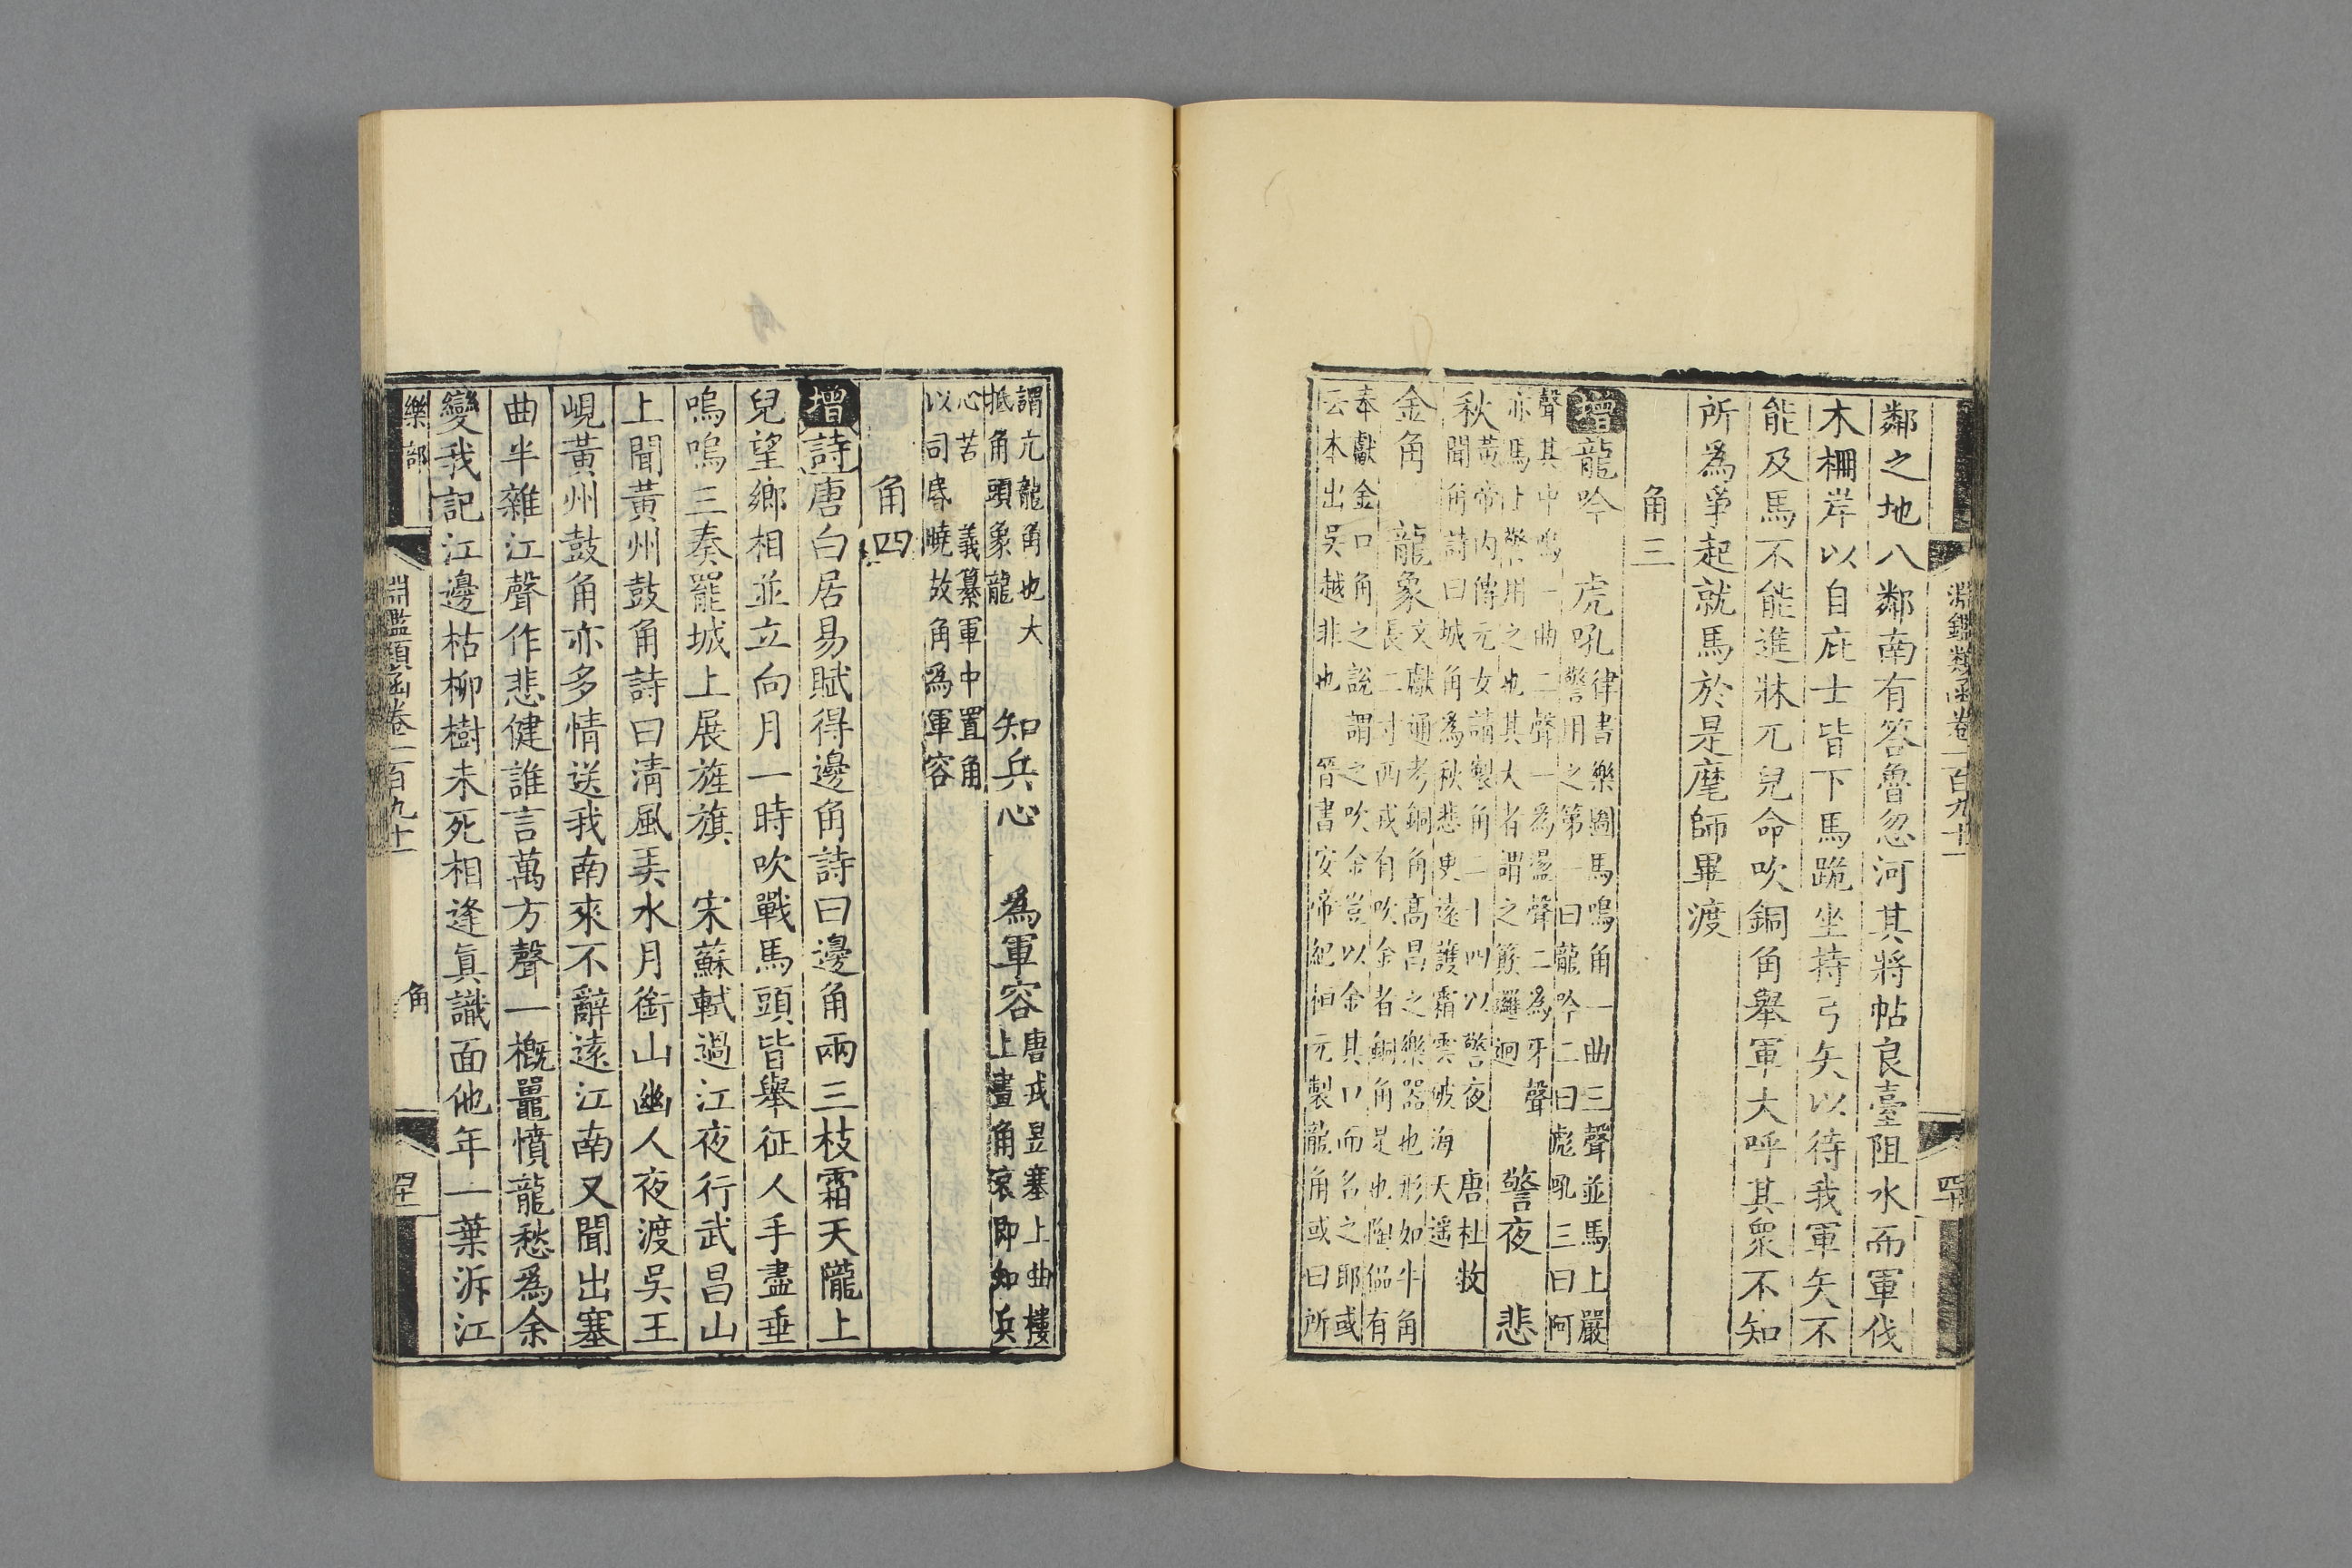 淵鑑類函卷一百九十一
鄰之地八鄰南有答魯忽河其將帖良臺阻水而軍伐
木柵岸以自庇士皆下馬跪坐持弓矢以待我軍矢不
能及馬不能進牀兀兒命吹銅角舉軍大呼其衆不知
所爲爭起就馬於是麾師畢渡
角三
增龍吟 虎吼律書樂圖馬鳴角一曲三聲並馬上嚴
警用之第一曰龍吟二曰彪吼三曰阿
聲其中鳴一曲二聲一爲盪聲二爲牙聲
亦馬上樂用之也其大者謂之簸邏迴 警夜 悲
秋黃帝內傳元女請製角二十四以警夜 唐杜牧
聞角詩曰城角爲秋悲更遠護霜雲破海天遥
金角 龍象文獻通考銅角高昌之樂器也形如牛角
長二寸西戎有吹金者銅角是也陶侃有
奉獻金口角之說謂之吹金豈以金其口而名之耶或
云本出吳越非也 晉書安帝紀桓元製龍角或曰所
謂亢龍角也大
抵角頭象龍 知兵心 爲軍容唐戎昱塞上曲樓
上畫角哀即知兵
心苦 義纂軍中置角
以司昏曉故角爲軍容
角四
增詩唐白居易賦得邊角詩曰邊角兩三枝霜天隴上
兒望鄉相並立向月一時吹戰馬頭皆舉征人手盡垂
嗚嗚三奏罷城上展旌旗 宋蘇軾過江夜行武昌山
上聞黃州鼓角詩曰清風弄水月銜山幽人夜渡吳王
峴黃州鼓角亦多情送我南來不辭遠江南又聞出塞
曲半雜江聲作悲健誰言萬方聲一概鼉憤龍愁爲余
變我記江邊枯柳樹未死相逢眞識面他年一葉泝江
樂部
淵鑑類函卷一百九十一
角